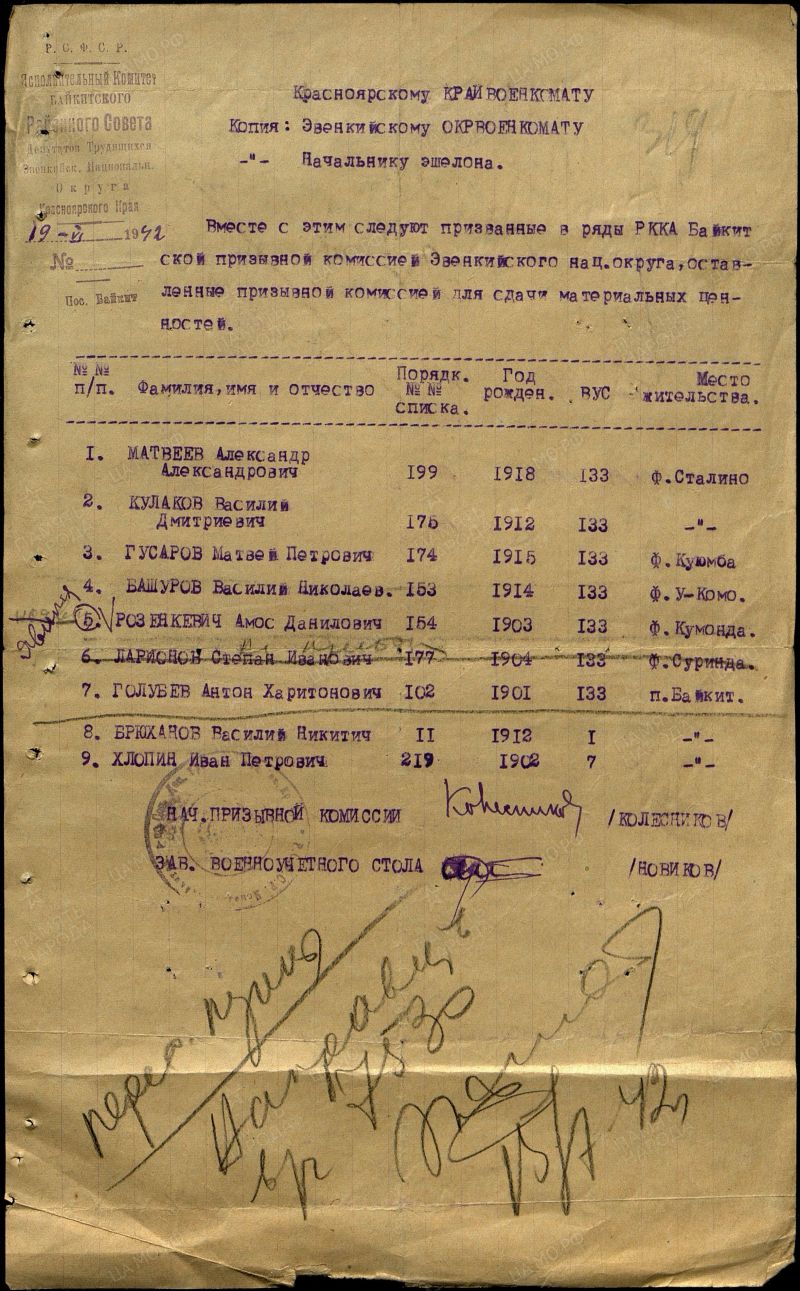 Р. С. Ф. С. Р.
Исполнительный Комитет
БАЙКИТСКОГО
Районного Совета
Депутатов Трудящихся
Эвенкийск. Национальн.
Округа
Красноярского Края
19-VI 1942
№
Пос. Байкит
319
Красноярскому КРАЙВОЕНКОМАТУ
Копия: Эвенкийскому ОКРВОЕНКОМАТУ
-"- Начальнику эшелона.
Вместе с этим следуют призванные в ряды РККА Байкит
ской призывной комиссией Эвенкийского нац.округа,остав-
ленные призывной комиссией для сдачи материальных цен-
ностей.
№№ п/п. Фамилия,имя и отчество Порядк. №№ списка. Год рожден. ВУС Место жительства.
1. МАТВЕЕВ Александр
Александрович 199 1918 133 ф.Сталино
2. КУЛАКОВ Василий
Дмитриевич 176 1912 133 -"-
3. ГУСАРОВ Матвей Петрович 174 1915 133 ф.Куюмба
4. БАШУРОВ Василий Николаев. 153 1914 133 ф.У-Комо.
5. РОЗЕНКЕВИЧ Амос Данилович 154 1903 133 ф.Кумонда.
6. ЛАРИОНОВ Степан Иванович 177 1904 133 ф.Суринда.
7. ГОЛУБЕВ Антон Харитонович 102 1901 133 п.Байкит.
8. БРЮХАНОВ Василий Никитич II 1912 I -"-
9. ХЛОПИН Иван Петрович 219 1902 7 -"-
НАЧ.ПРИЗЫВНОЙ КОМИССИИ Колесников /КОЛЕСНИКОВ/
ЗАВ. ВОЕННОУЧЕТНОГО СТОЛА /НОВИКОВ/
перес. пункт
Направить